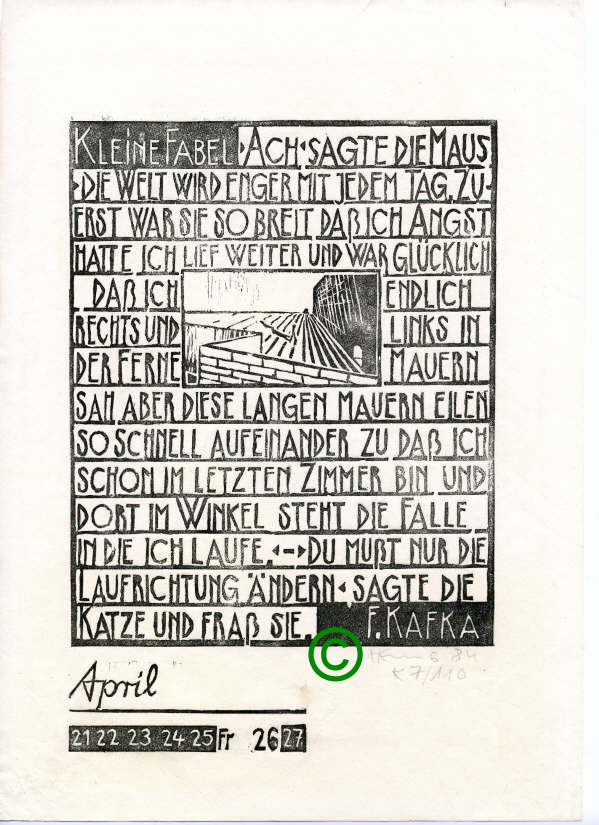 KLEINE FABEL ›ACH‹ SAGTE DIE MAUS
›DIE WELT WIRD ENGER MIT JEDEM TAG. ZU-
ERST WAR SIE SO BREIT DAß ICH ANGST
HATTE ICH LIEF WEITER UND WAR GLÜCKLICH
DAß ICH ENDLICH
RECHTS UND LINKS IN
DER FERNE MAUERN
SAH ABER DIESE LANGEN MAUERN EILEN
SO SCHNELL AUFEINANDER ZU DAß ICH
SCHON IM LETZTEN ZIMMER BIN UND
DORT IM WINKEL STEHT DIE FALLE
IN DIE ICH LAUFE.‹–›DU MUßT NUR DIE
LAUFRICHTUNG ÄNDERN‹ SAGTE DIE
KATZE UND FRAß SIE. F. KAFKA
©
84
April
21 22 23 24 25 Fr 26 27